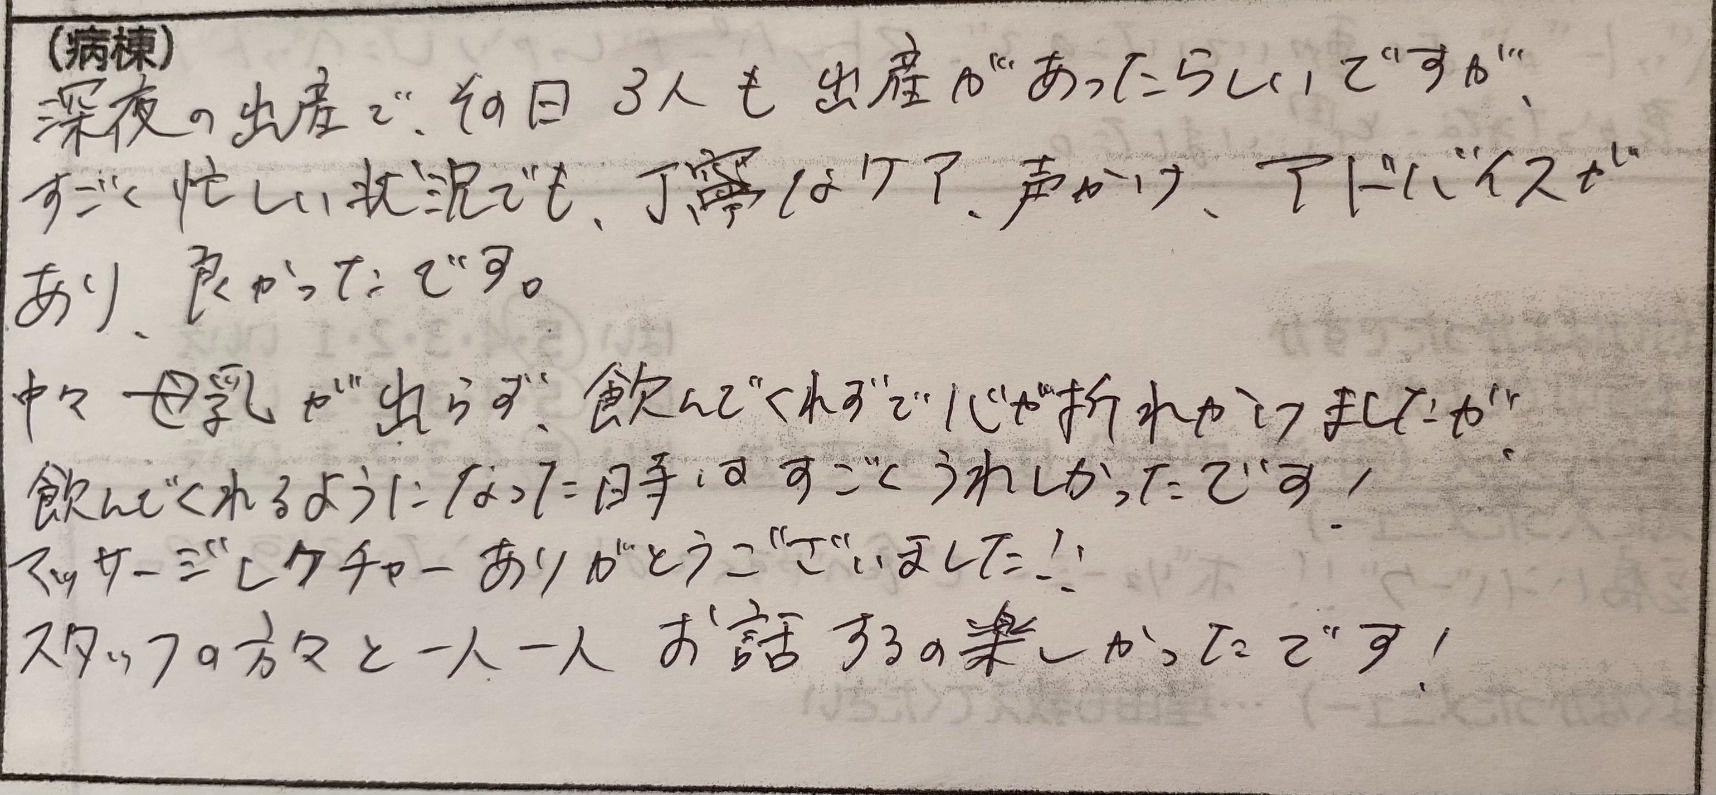 (病棟)
深夜の出産で、その日 3人も出産があったらしいですが、
すごく忙しい状況でも、丁寧なケア、声かけ、アドバイスが
あり、良かったです。
中々母乳が出らず、飲んでくれずで心が折れかけましたが、
飲んでくれるようになった時はすごくうれしかったです!
マッサージレクチャーありがとうございました!!
スタッフの方々と一人一人お話するの楽しかったです!